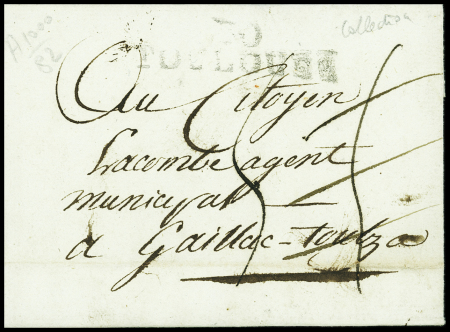 Collection
TOULOUSE
Au Citoyen
Lacombe agent
municipal
a Gaillac-toulza